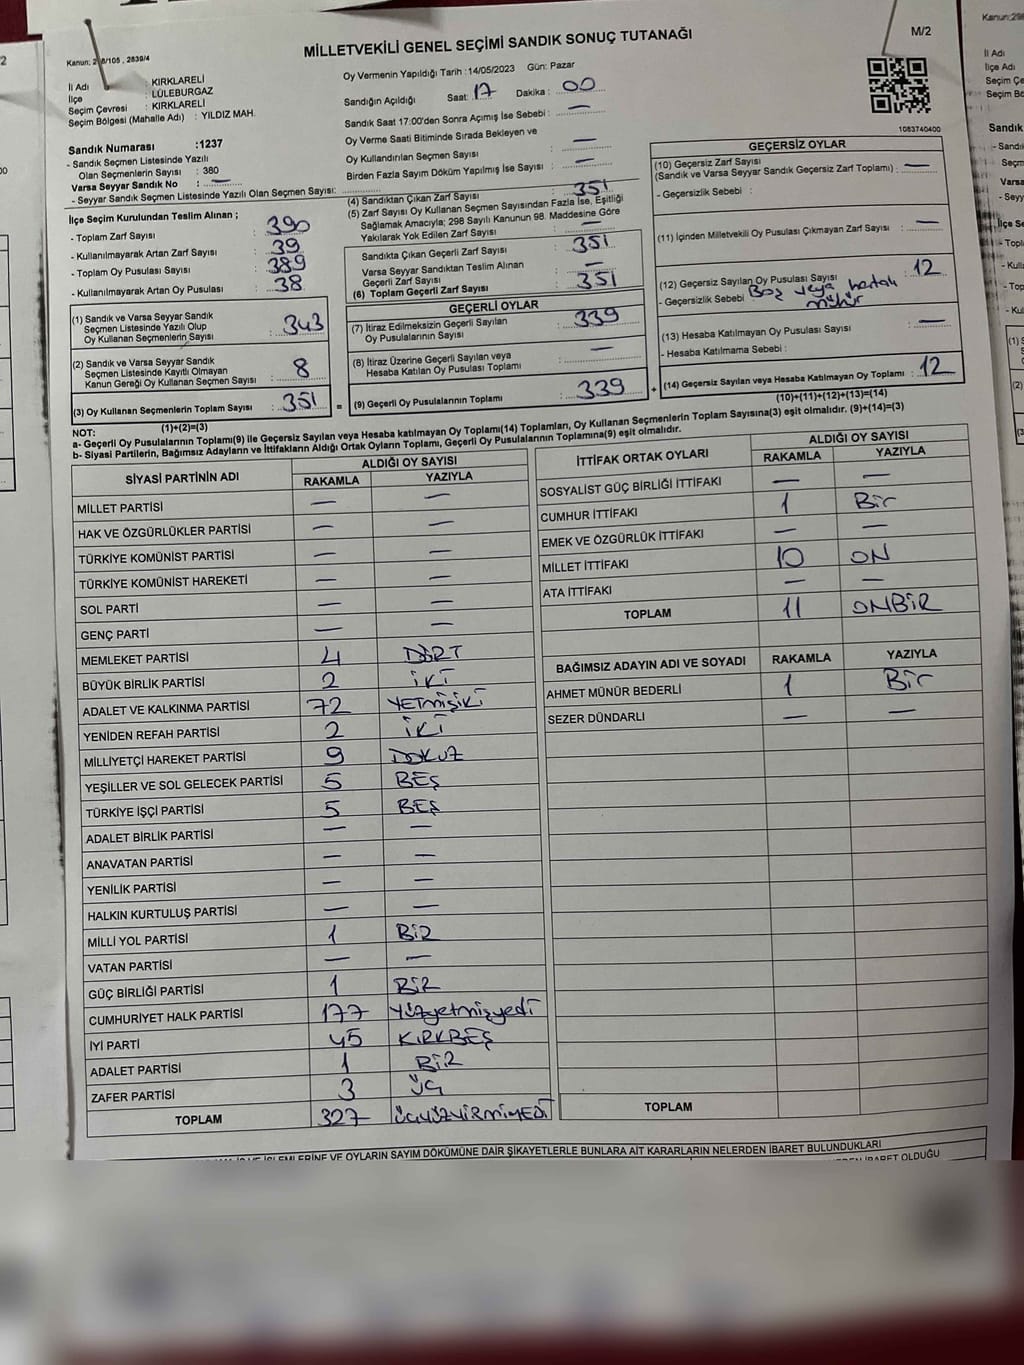 MİLLETVEKİLİ GENEL SEÇİMİ SANDIK SONUÇ TUTANAĞI
M/2
İl Adı : KIRKLARELİ
İlçe : LÜLEBURGAZ
Seçim Çevresi : KIRKLARELİ
Seçim Bölgesi (Mahalle Adı) : YILDIZ MAH.
Oy Vermenin Yapıldığı Tarih : 14/05/2023 Gün: Pazar
Sandığın Açıldığı Saat: 17 Dakika : 00
Sandık Saat 17:00'den Sonra Açımış İse Sebebi : —
Oy Verme Saati Bitiminde Sırada Bekleyen ve
Oy Kullandırılan Seçmen Sayısı : —
Birden Fazla Sayım Döküm Yapılmış İse Sayısı : —
1083740400
Sandık Numarası :1237
- Sandık Seçmen Listesinde Yazılı
Olan Seçmenlerin Sayısı : 380
Varsa Seyyar Sandık No : —
- Seyyar Sandık Seçmen Listesinde Yazılı Olan Seçmen Sayısı:
İlçe Seçim Kurulundan Teslim Alınan ;
- Toplam Zarf Sayısı : 390
- Kullanılmayarak Artan Zarf Sayısı : 39
- Toplam Oy Pusulası Sayısı : 389
- Kullanılmayarak Artan Oy Pusulası : 38
(1) Sandık ve Varsa Seyyar Sandık
Seçmen Listesinde Yazılı Olup
Oy Kullanan Seçmenlerin Sayısı : 343
(2) Sandık ve Varsa Seyyar Sandık
Seçmen Listesinde Kayıtlı Olmayan
Kanun Gereği Oy Kullanan Seçmen Sayısı : 8
(3) Oy Kullanan Seçmenlerin Toplam Sayısı : 351
(1)+(2)=(3)
(4) Sandıktan Çıkan Zarf Sayısı : 351
(5) Zarf Sayısı Oy Kullanan Seçmen Sayısından Fazla İse, Eşitliği
Sağlamak Amacıyla; 298 Sayılı Kanunun 98. Maddesine Göre
Yakılarak Yok Edilen Zarf Sayısı : —
Sandıkta Çıkan Geçerli Zarf Sayısı : 351
Varsa Seyyar Sandıktan Teslim Alınan
Geçerli Zarf Sayısı : —
(6) Toplam Geçerli Zarf Sayısı : 351
GEÇERLİ OYLAR
(7) İtiraz Edilmeksizin Geçerli Sayılan
Oy Pusulalarının Sayısı : 339
(8) İtiraz Üzerine Geçerli Sayılan veya
Hesaba Katılan Oy Pusulası Toplamı : —
= (9) Geçerli Oy Pusulalarının Toplamı : 339 +
GEÇERSİZ OYLAR
(10) Geçersiz Zarf Sayısı
(Sandık ve Varsa Seyyar Sandık Geçersiz Zarf Toplamı) : —
- Geçersizlik Sebebi :
(11) İçinden Milletvekili Oy Pusulası Çıkmayan Zarf Sayısı : —
(12) Geçersiz Sayılan Oy Pusulası Sayısı : 12
- Geçersizlik Sebebi : Boş veya hatalı
mühür
(13) Hesaba Katılmayan Oy Pusulası Sayısı : —
- Hesaba Katılmama Sebebi :
(14) Geçersiz Sayılan veya Hesaba Katılmayan Oy Toplamı : 12
(10)+(11)+(12)+(13)=(14)
NOT:
a- Geçerli Oy Pusulalarının Toplamı(9) ile Geçersiz Sayılan veya Hesaba katılmayan Oy Toplamı(14) Toplamları, Oy Kullanan Seçmenlerin Toplam Sayısına(3) eşit olmalıdır. (9)+(14)=(3)
b- Siyasi Partilerin, Bağımsız Adayların ve İttifakların Aldığı Ortak Oyların Toplamı, Geçerli Oy Pusulalarının Toplamına(9) eşit olmalıdır.
SİYASİ PARTİNİN ADI ALDIĞI OY SAYISI
RAKAMLA YAZIYLA
MİLLET PARTİSİ — —
HAK VE ÖZGÜRLÜKLER PARTİSİ — —
TÜRKİYE KOMÜNİST PARTİSİ — —
TÜRKİYE KOMÜNİST HAREKETİ — —
SOL PARTİ — —
GENÇ PARTİ — —
MEMLEKET PARTİSİ 4 DÖRT
BÜYÜK BİRLİK PARTİSİ 2 İKİ
ADALET VE KALKINMA PARTİSİ 72 YETMİŞİKİ
YENİDEN REFAH PARTİSİ 2 İKİ
MİLLİYETÇİ HAREKET PARTİSİ 9 DOKUZ
YEŞİLLER VE SOL GELECEK PARTİSİ 5 BEŞ
TÜRKİYE İŞÇİ PARTİSİ 5 BEŞ
ADALET BİRLİK PARTİSİ — —
ANAVATAN PARTİSİ — —
YENİLİK PARTİSİ — —
HALKIN KURTULUŞ PARTİSİ — —
MİLLİ YOL PARTİSİ 1 BİR
VATAN PARTİSİ — —
GÜÇ BİRLİĞİ PARTİSİ 1 BİR
CUMHURİYET HALK PARTİSİ 177 Yüzyetmişyedi
İYİ PARTİ 45 KIRKBEŞ
ADALET PARTİSİ 1 BİR
ZAFER PARTİSİ 3 ÜÇ
TOPLAM 327 ÜÇYÜZYİRMİYEDİ
İTTİFAK ORTAK OYLARI ALDIĞI OY SAYISI
RAKAMLA YAZIYLA
SOSYALİST GÜÇ BİRLİĞİ İTTİFAKI — —
CUMHUR İTTİFAKI 1 Bir
EMEK VE ÖZGÜRLÜK İTTİFAKI — —
MİLLET İTTİFAKI 10 ON
ATA İTTİFAKI — —
TOPLAM 11 ONBİR
BAĞIMSIZ ADAYIN ADI VE SOYADI RAKAMLA YAZIYLA
AHMET MÜNÜR BEDERLİ 1 Bir
SEZER DÜNDARLI — —
TOPLAM
İŞLEMLERİNE VE OYLARIN SAYIM DÖKÜMÜNE DAİR ŞİKAYETLERLE BUNLARA AİT KARARLARIN NELERDEN İBARET BULUNDUKLARI